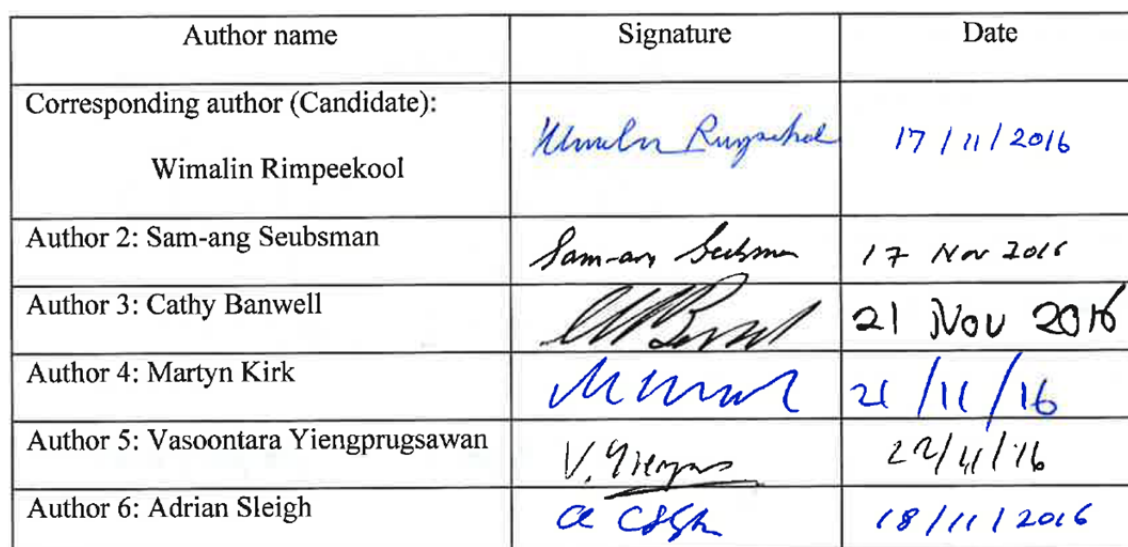 Author name Signature Date
Corresponding author (Candidate):
Wimalin Rimpeekool 17/11/2016
Author 2: Sam-ang Seubsman Sam-ang Seubsman 17 Nov 2016
Author 3: Cathy Banwell 21 Nov 2016
Author 4: Martyn Kirk 21/11/16
Author 5: Vasoontara Yiengprugsawan V. 22/11/16
Author 6: Adrian Sleigh 18/11/2016